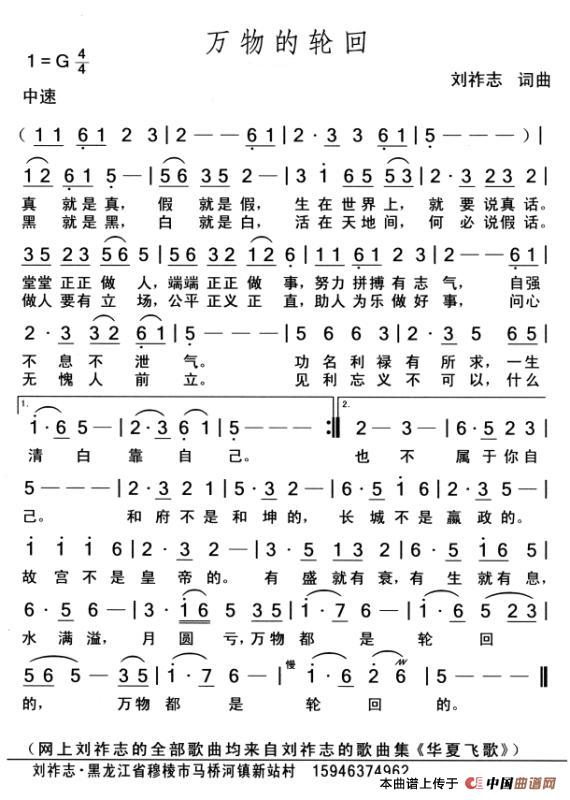 万物的轮回
1=G 4/4
刘祚志 词曲
中速
(11 61 2 3 | 2 — — 61 | 2· 3 3 61 | 5 — — — ) |
12 61 5 — | 56 35 2 — | 3 1 65 1 | 2·3 23 2 |
真 就是真, 假 就是假, 生在世界上, 就要说真话。
黑 就是黑, 白 就是白, 活在天地间, 何必说假话。
35 23 56 5 | 56 32 12 6 | 11 61 2 3 | 2 — — 61 |
堂堂正正做人, 端端正正做事, 努力拼搏有志气, 自强
做人要有立场, 公平正义正直, 助人为乐做好事, 问心
2· 3 32 61 | 5 — — — | 5 6 6 3 | 2· 3 2 65 |
不息不泄气。 功名利禄有所求, 一生
无愧人前立。 见利忘义不可以, 什么
1. 2.
1· 6 5 — | 2·3 6 1 | 5 — — — :| 2 — 3 — | 6·5 23 |
清白靠自己。 也不属于你自
5 — — — | 2·3 2 3 | 5·3 2 — | 6·5 6 1 | 2·3 5 — |
己。 和府不是和坤的, 长城不是嬴政的。
1 1 1 6 | 2·3 5 — | 3·5 13 2 | 6·5 16 5 |
故宫不是皇帝的。 有盛就有衰, 有生就有息,
6· 5 6 — | 3· 16 5 35 | 1· 7 6 — | 1·6 5 23 |
水满溢, 月圆亏, 万物都是轮回
慢
56 5 — 35 | 1· 7 6 — | 1·6 2 6 | 5 — — — ‖
的, 万物都是轮回的。
(网上刘祚志的全部歌曲均来自刘祚志的歌曲集《华夏飞歌》)
刘祚志·黑龙江省穆棱市马桥河镇新站村 15946374962
本曲谱上传于 中国曲谱网